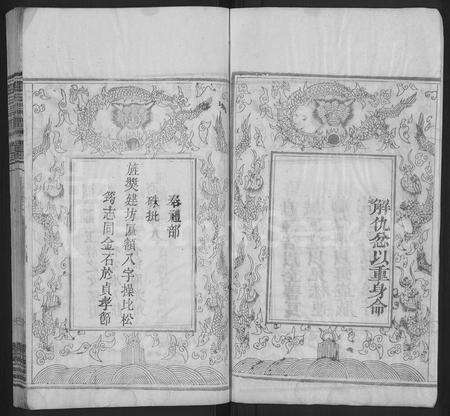 解仇忿以重身命
咨禮部
硃批
旌獎建坊匾額入字操比松
筠志同金石於貞孝節